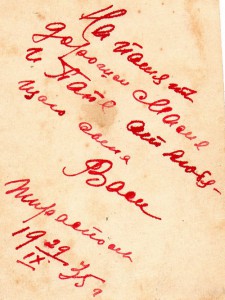 На память
дорогим Масе
и Пате от любя-
щего
Васи
Тирасполь
19 29/IX 45 г